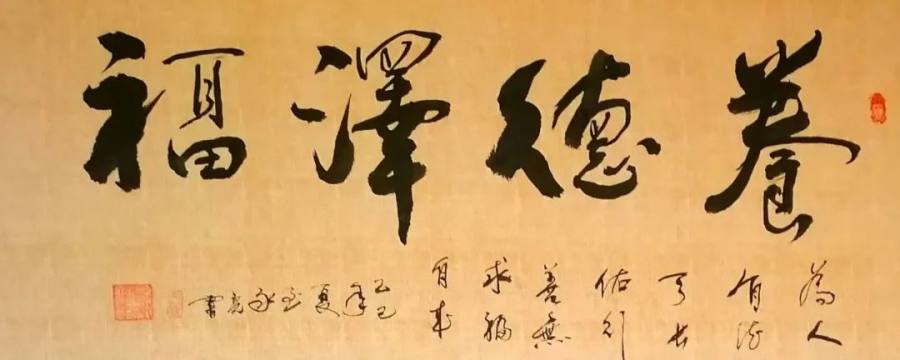 養德澤福
為人
有德
天長
佑行
善無
求福
自來
乙巳
年
夏
至
書